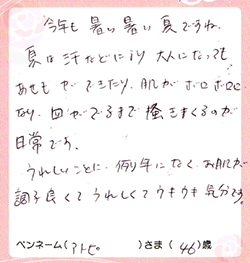 今年も暑い暑い夏ですね。
夏は汗などにより大人になっても
あせもができたり、肌がボロボロに
なり、血がでるまで掻きまくるのが
日常です。
うれしいことに、例年になくお肌が
調子良くてうれしくてウキウキ気分です。
ペンネーム(アトピ。)さま(46)歳